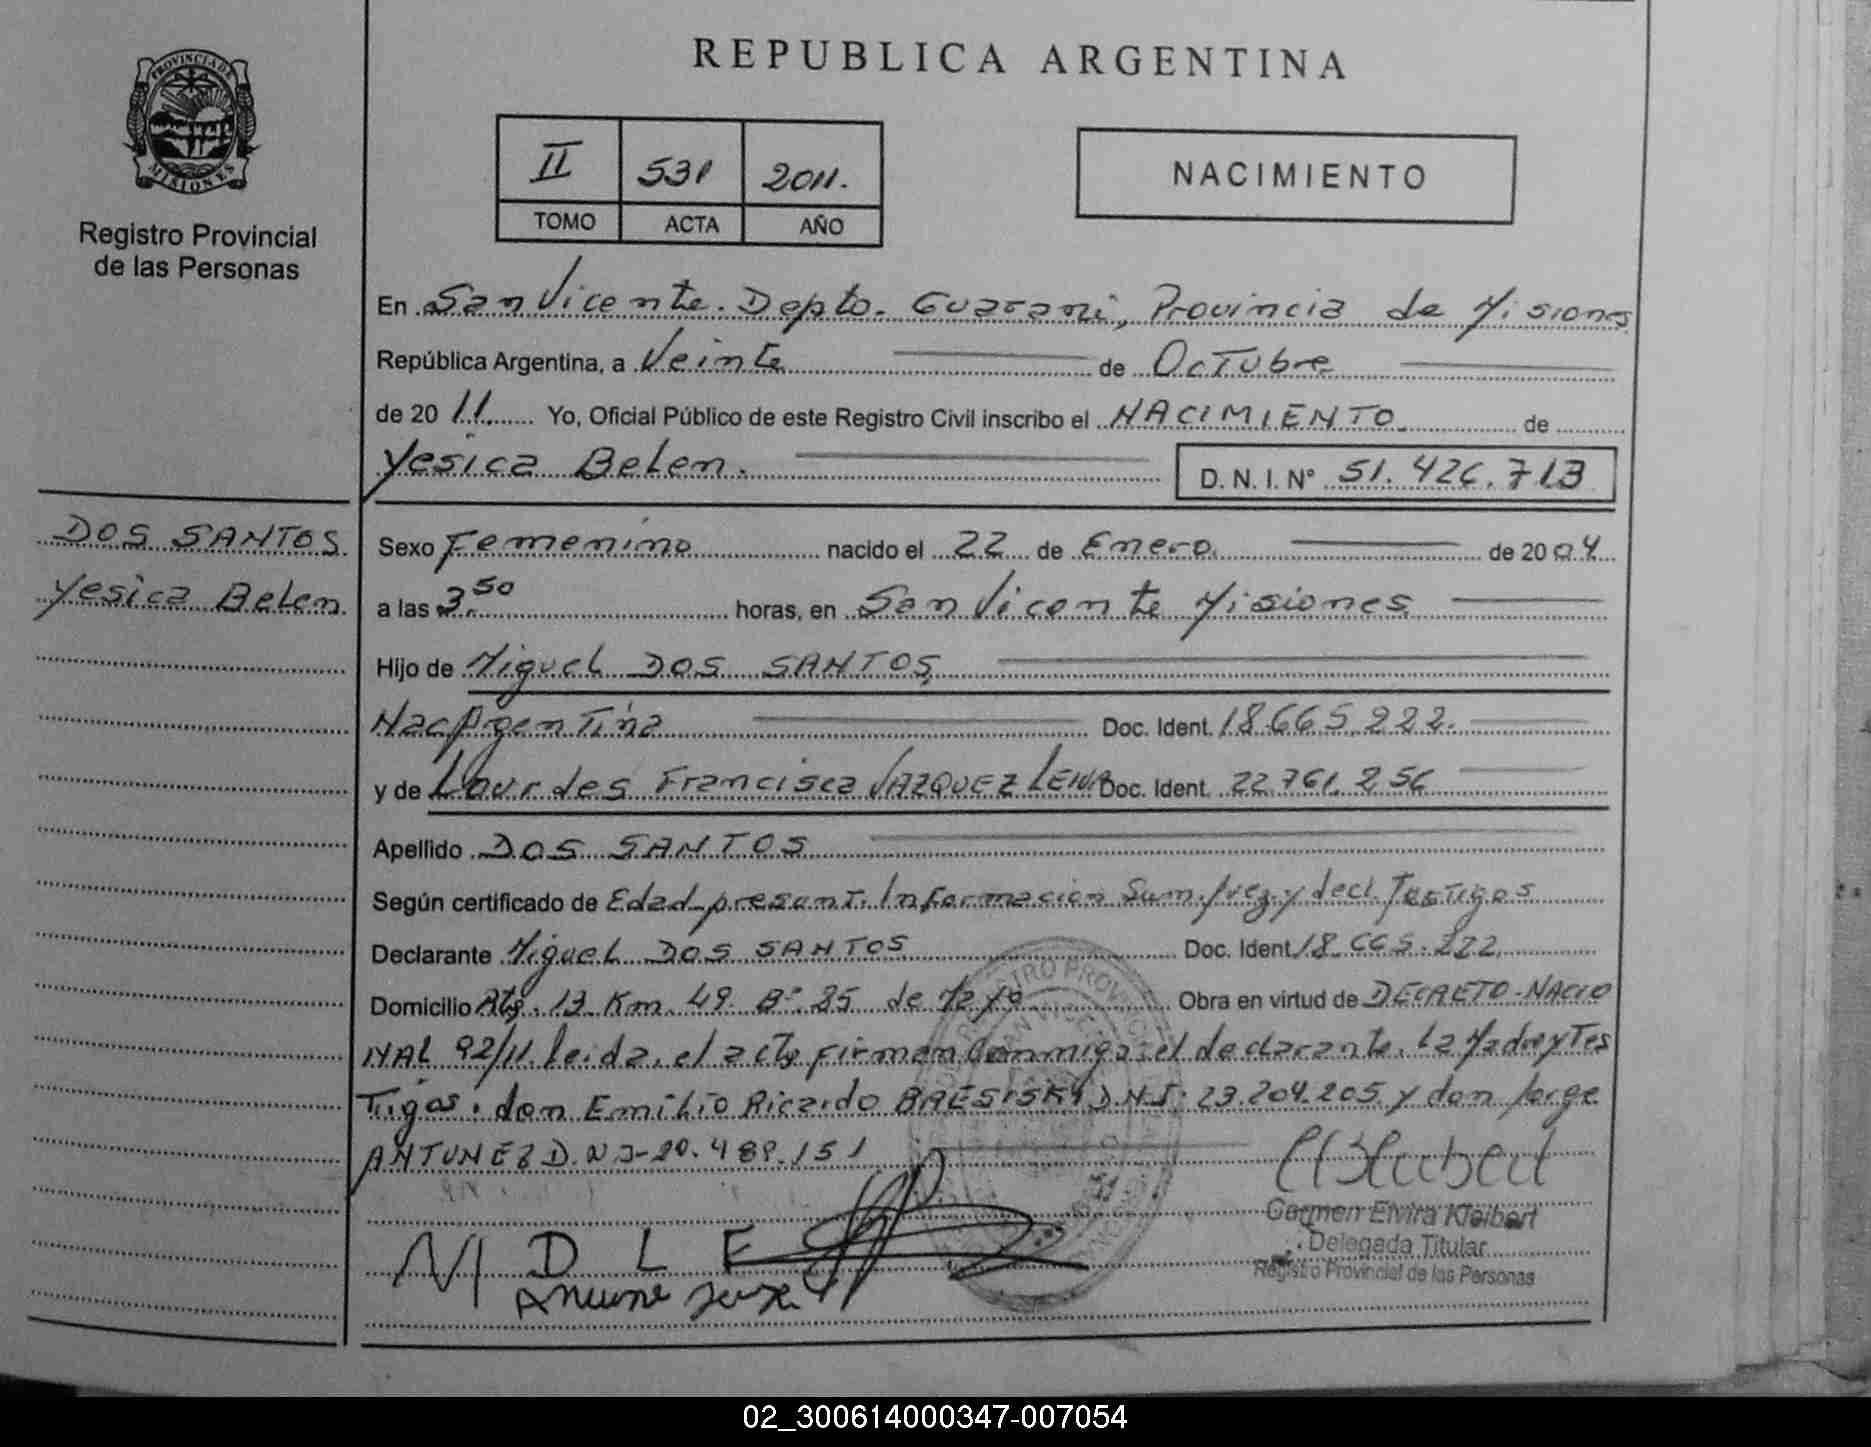 REPUBLICA ARGENTINA
PROVINCIA DE MISIONES
Registro Provincial
de las Personas
II 531 2011.
TOMO ACTA AÑO
NACIMIENTO
En San Vicente. Depto. Guarani, Provincia de Misiones
República Argentina, a Veinte de Octubre
de 20 11 Yo, Oficial Público de este Registro Civil inscribo el NACIMIENTO de
Yesica Belen. D. N. I. N° 51.426.713
DOS SANTOS
Yesica Belen
Sexo Femenino nacido el 22 de Enero de 2004
a las 3.50 horas, en San Vicente Misiones
Hijo de Miguel DOS SANTOS
Nac Argentina Doc. Ident. 18.665.222.
y de Lourdes Francisca VAZQUEZ Doc. Ident. 22.761.256
Apellido DOS SANTOS
Según certificado de Edad presunt. Informacion Sum. Juez y decl. Testigos
Declarante Miguel DOS SANTOS Doc. Ident 18.665.222
Domicilio Rta. 13 Km. 49. B° 25 de Mayo Obra en virtud de DECRETO-NACIO
NAL 92/11. leida, el acta firman Conmigo el declarante. La Madre y Tes
Tigos. don Emilio Ricardo D.N.I. 23.204.205 y don Jorge
ANTUNEZ D.N.I-20.489.151
M D L E
Carmen Elvira Kleibert
Delegada Titular
Registro Provincial de las Personas
02_300614000347-007054